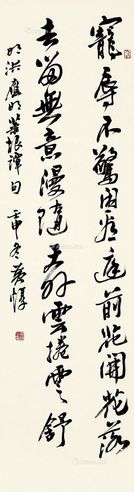 寵辱不驚閒看庭前花開花落
去留無意漫隨天外雲捲雲舒
明洪應明菜根譚句 壬申冬黃惇